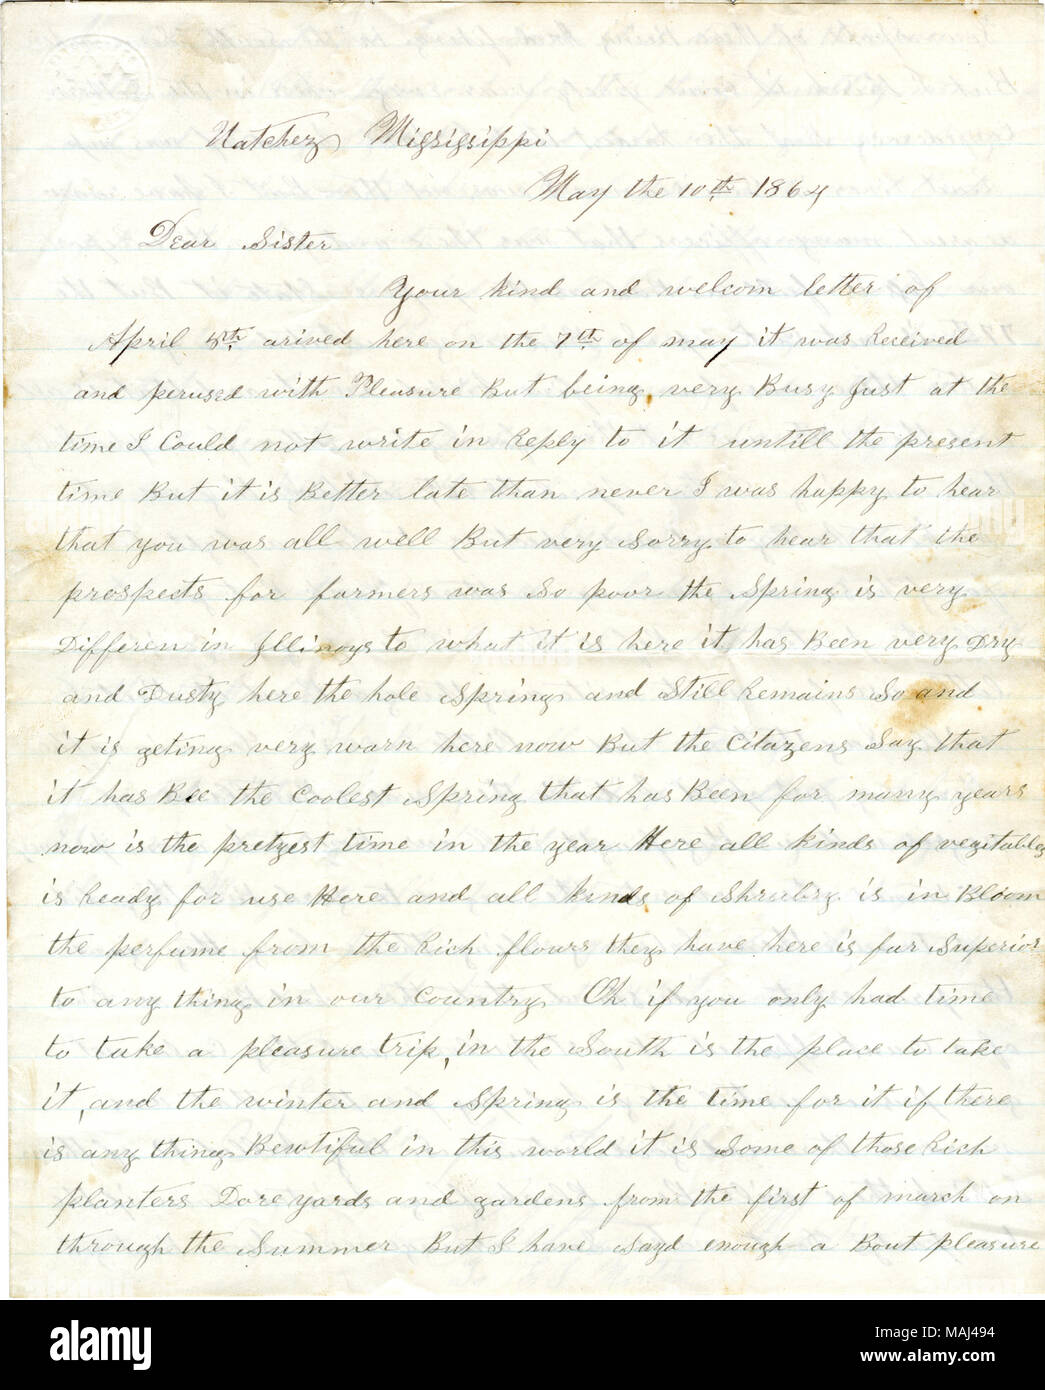 Natchez Missisippi
May the 10th 1864
Dear Sister
Your kind and welcom letter of
April 5th arived here on the 7th of may it was Received
and perused with Pleasure But being very Busy Just at the
time I Could not write in Reply to it untill the present
time But it is Better late than never I was happy to hear
that you was all well But very Sorry to hear that the
prospects for farmers was So poor the Spring is very
Differen in Illinoys to what it is here it has Been very Dry
and Dusty here the hole Spring and Still Remains So and
it is geting very warn here now But the Citazens Say that
it has Bee the Coolest Spring that has Been for many years
now is the pretyest time in the year Here all kinds of vegitables
is Ready for use Here and all kinds of Shrubry is in Bloom
the perfume from the Rich flours they have here is far Superior
to any thing in our Country Oh if you only had time
to take a pleasure trip, in the South is the place to take
it, and the winter and Spring is the time for it if there
is any thing Bewtiful in this world it is Some of those Rich
planters Dore yards and gardens from the first of march on
through the Summer But I have Sayd enough a Bout pleasure
alamy
Image ID: MAJ494
www.alamy.com